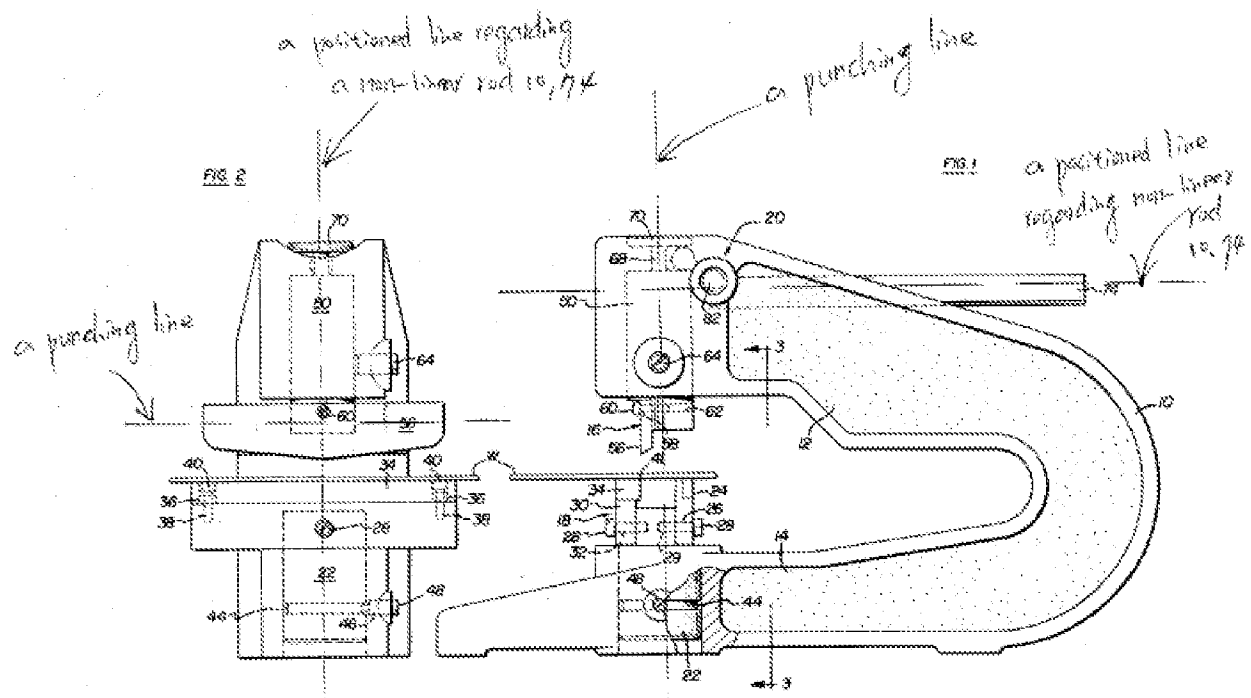 a positioned line regarding
a non-linear rod 10, 74
a punching line
FIG. 2
FIG. 1
a positioned line
regarding non-linear
rod
10, 74
a punching line
70
50
64
60
56
40
34
40
W
36
36
38
38
28
22
44
46
48
70
20
68
50
52
74
64
3
10
12
60
62
16
58
56
42
34
24
30
18
26
28
28
32
29
14
48
44
22
3